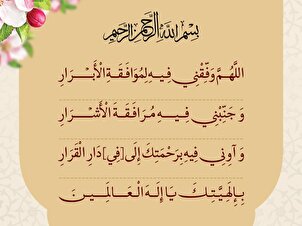 بسم الله الرحمن الرحیم
اللَّهُمَّ وَفِّقْنِي فِيهِ لِمُوَافَقَةِ الْأَبْرَارِ
وَ جَنِّبْنِي فِيهِ مُرَافَقَةَ الْأَشْرَارِ
وَ آوِنِي فِيهِ بِرَحْمَتِكَ إِلَى [فِي] دَارِ الْقَرَارِ
بِإِلَهِيَّتِكَ يَا إِلَهَ الْعَالَمِينَ